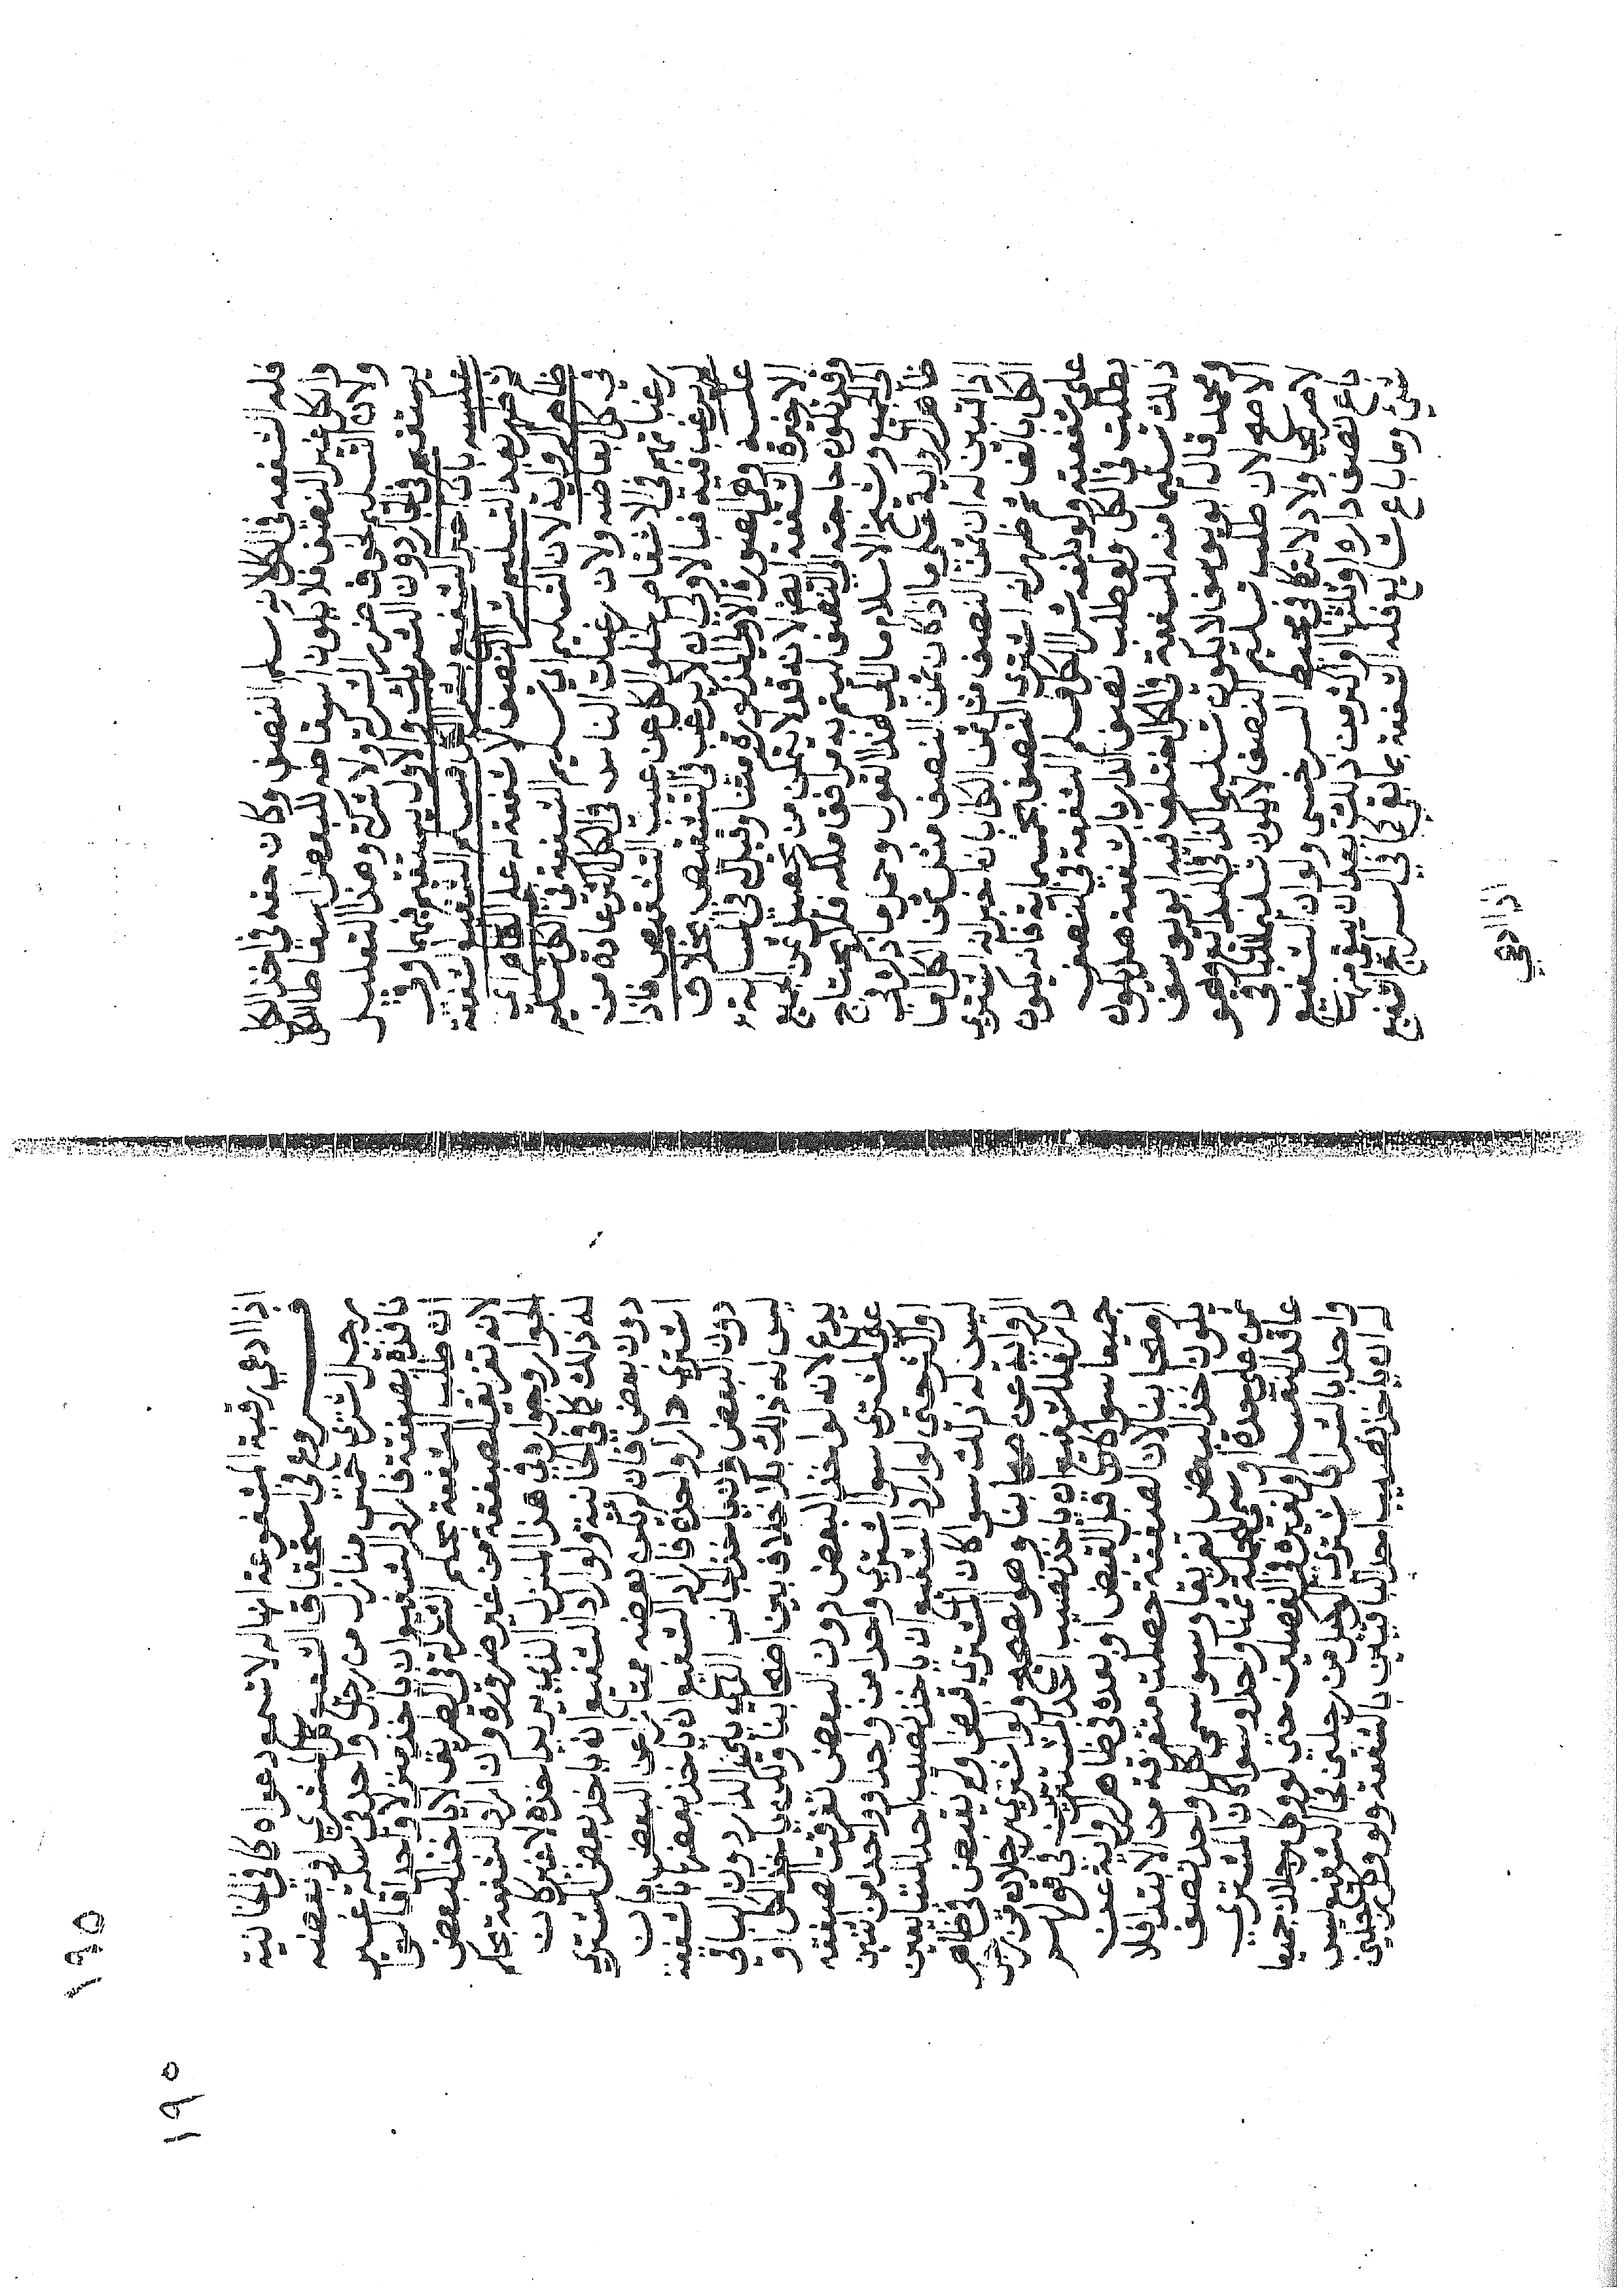 فله الشفعه في الكل لانه سلم النصف وكان حقه في اخذ الكل
والكل غير النصف فلا يكون اسقاطه للبعض اسقاطا للكل
ولان التسليم لخوف ضرر الشركة ولا شركة وهذا التعليل
يستقيم في الجار دون الشريك والاول يستقيم فيهما وفي
عكسه بان اخبر الشفيع بشرا الكل فسلم الشفيع الشفعة
ثم ظهر بعد التسليم شرا النصف لا شفعة له علي الظاهر اي
ظاهر الرواية لان التسليم اي تسليم الشفعة في الكل تسليم
في كل ابعاضه ولان رغبات الناس في الكل اكثر عادة من
رغباتهم في الاشقاص لخلو الكل عن عيب التشقيص فاذا
لم يرغب فيه فبالاولي ان لا يرغب في التشقيص بخلاف
عكسه وهي الصورة الاولي المذكورة متنا وقيل في المسالة
الاخيرة الشفعة ايضا لانه قد لا يتمكن من تحصيل ثمن الجميع
وقد يكون حاجته الي النصف ليتم به مرافق ملكه فلا يحتاج
الي الجميع وشيخ الاسلام مال الي هذا القول وحمل ما ذكر في
ظاهر الرواية علي ما اذا كان ثمن النصف مثل ثمن الكل اما
اذا تبين له ان ثمن النصف مثل ثمن الكل بان اخبر انه اشتري
الكل بالف ثم ظهر انه اشتري النصف بخمسماية فانه يكون
علي شفعته ولو بلغه شرا الكل فسلم الشفعة في النصف
بطلت في الكل ولو طلب نصف الدار بالشفعة هل يكون
ذلك تسليما منه للشفعة في الكل اختلف فيه ابو يوسف
ومحمد قال ابو يوسف لا يكون تسليما كذا في البدايع وهو
الاصح لان طلب تسليم النصف لا يكون تسليما للباقي
لا صريحا ولا دلالة كما في محيط السرخسي ولو ان الشفيع
باع نصف داره او ثلثها او اكثر من ذلك بعد ان يبقي منها
شئ وما باع شايع فله الشفعة بما بقي كما في السراج الشفيع
اذا ادعي
اذا ادعي رقبة المشفوعة انها له لا تسمع دعواه كما في الخانية
فروع في استحقاق الشفيع كل المشتري او بعضه
رجل اشتري خمس منازل من رجل واحد في سكة غير
نافذة بصفقة فاراد الشفيع ان ياخذ منزلا واحدا قالوا
ان طلب الشفعة بحكم الشركة في الطريق لا ياخذ البعض
لانه تفريق الصفقة من غير ضرورة وان اراد الشفعة بحكم
الجوار وجواره في هذا المنزل الذي يريد اخذه لا غير كان
له ذلك كما في الخانية ولو اراد الشفيع ان ياخذ بعض المشتري
دون بعض فان لم يكن بعضه ممتازا عن البعض بان
اشتري دارا واحدة فاراد الشفيع ان ياخذ بعضها بالشفعة
دون البعض وان ياخذ الجانب الذي يلي الدار دون الباقي
ليس له ذلك بلا خلاف بين اصحابنا ولكن ياخذ الكل او
يدع لانه لو اخذ البعض دون البعض تفرقت الصفقة
علي المشتري سوا اشتري واحدا من واحد او واحدا من اثنين
او اكثر حتي لو اراد الشفيع ان ياخذ نصيب احد البايعين
ليس له ذلك سوا كان المشتري قبض او لم يقبض في ظاهر
الرواية عن اصحابنا وهو الصحيح ولو اشتري رجلان من رجل
دارا فللشفيع ان ياخذ نصيب احد المشتريين في قولهم
جميعا سوا كان قبل القبض او بعده في ظاهر الرواية عن
اصحابنا لان الصفقة حصلت متفرقة من الابتدا فلا
يكون اخذ البعض تفريقا وسوا سمي لكل واحد نصف
ثمن علي حدة او سمي للجملة ثمنا واحدا وسوا كان المشتري
عاقدا لنفسه او لغيره في الفصلين حتي لو وكل رجلان جميعا
واحدا بالشرا فاشتري الوكيل من رجلين فجا الشفيع ليس
له ان ياخذ نصيب احد البايعين بالشفعة ولو وكل رجل رجلين
١٩٥
١٩٠